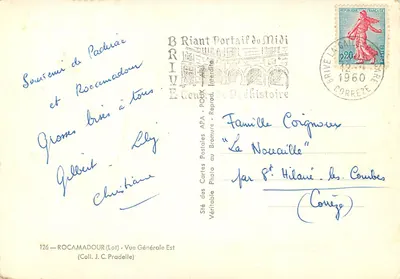 Souvenir de Padirac
et Rocamadour
Grosses bises à tous
Gilbert - Lily
Christiane
BRIVE
Riant Portail du Midi
Centre de Préhistoire
0,20
BRIVE LA GAILLARDE
1960
CORREZE
Sté des Cartes Postales APA - POUX
Véritable Photo au Bromure - Reprod. Interdite
Famille Coignoux
"La Nouaille"
par St Hilaire les Combes
(Corrèze)
126 — ROCAMADOUR (Lot) - Vue Générale Est
(Coll. J. C. Pradelle)